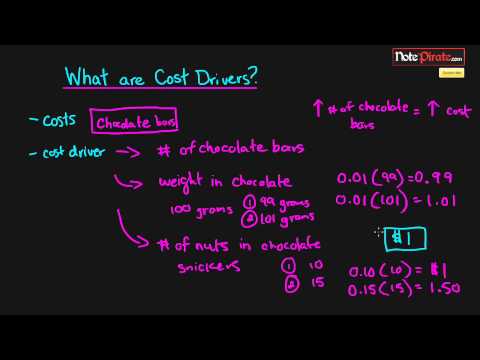 NotePirate.com
Subscribe
What are Cost Drivers?
- costs
Chocolate bars
↑ # of chocolate bars = ↑ cost
- cost driver → # of chocolate bars
→ weight in chocolate
100 grams ① 99 grams
② 101 grams
0.01(99) = 0.99
0.01(101) = 1.01
$1
→ # of nuts in chocolate
snickers
① 10
② 15
0.10(10) = $1
0.15(15) = 1.50